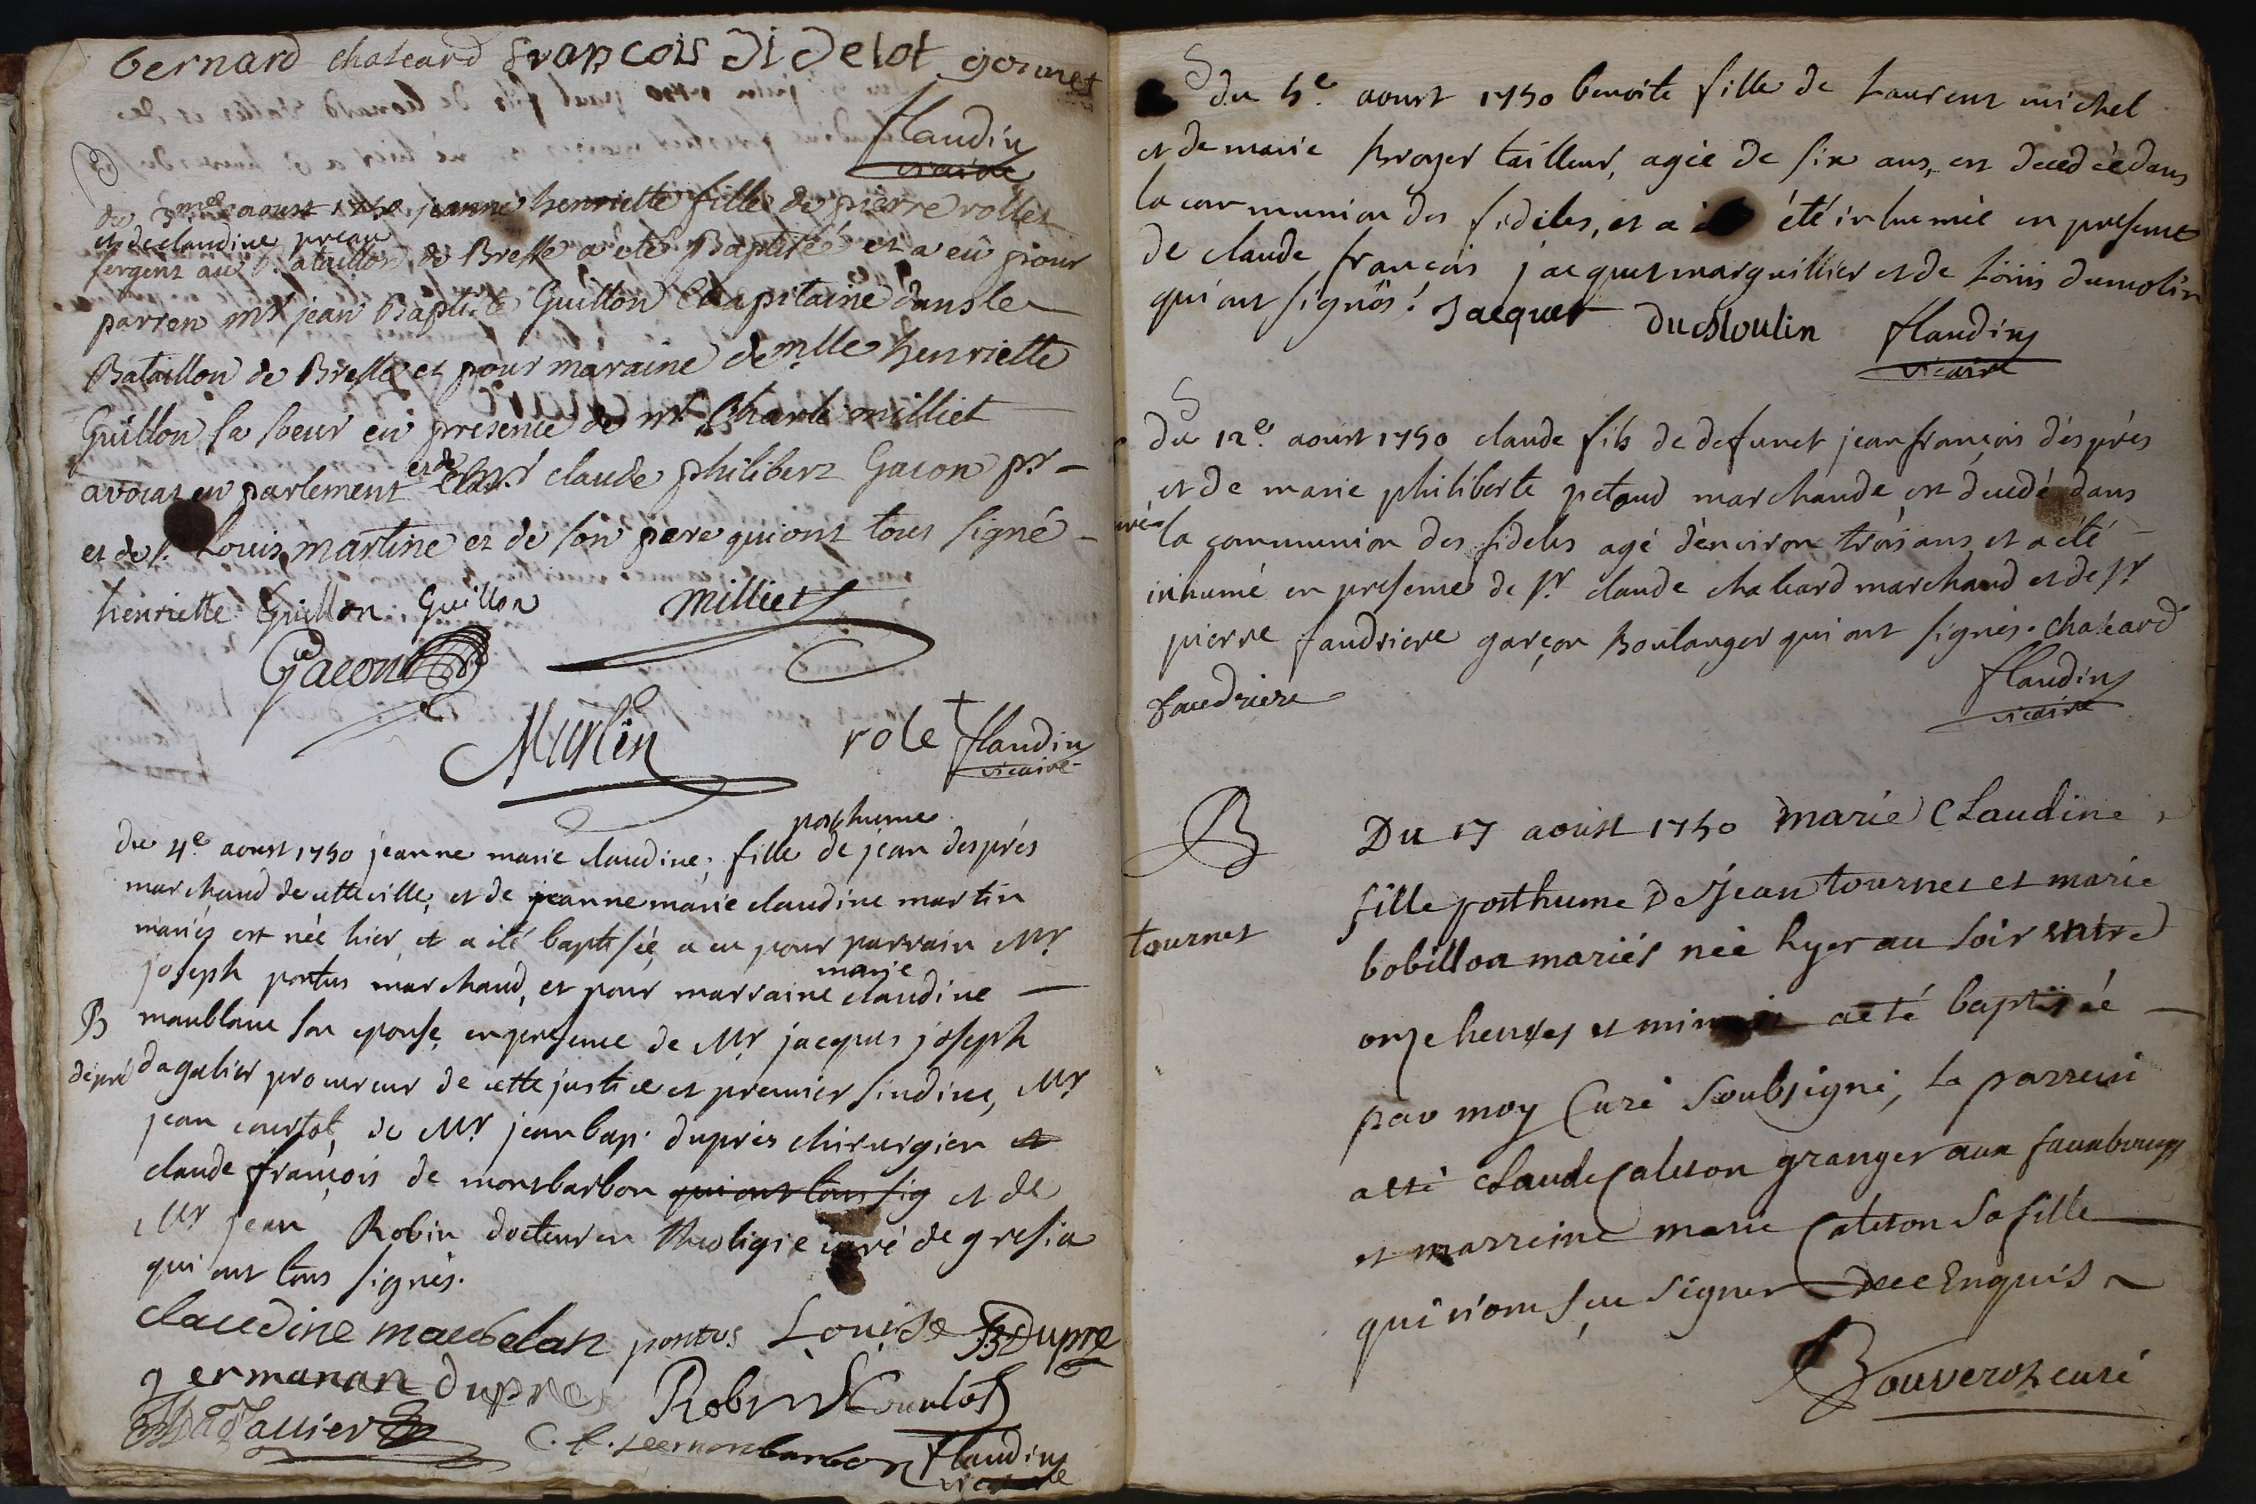 bernard chateard francois didelot gormet
flandin
vicaire
B
du 3me aoust 1750 jeanne henriette fille de pierre rollet
et de claudine preau
sergent au Bataillon de Bresse a eté Baptisé et a eü pour
parren mr jean Baptiste Guillon Capitaine dans le
Bataillon de Bresse et pour maraine demlle henriette
Guillon sa soeur en presence de mr Charle milliet
avocat en parlement et de claude philibert Gacon pr
et de sr Louis martine et de son pere qui ont tous signé
henriette Guillon Guillon milliet
Gacon
role flandin
vicaire
posthume
du 4e aoust 1750 jeanne marie claudine, fille de jean després
marchand de cette ville, et de jeanne marie claudine martin
mariés est née hier, et a été baptisée, a eu pour parrain Mr
joseph pontus marchand, et pour marraine marie claudine
B maublanc son epouse, en presence de Mr jacques joseph
dépré dagalier procureur de cette justice et premier sindice, Mr
jean courtot, de Mr jean bap. duprés chirurgien et
claude françois de montbarbon qui ont tous sig et de
Mr jean Robin docteur en theoligie curé de gresia
qui ont tous signés.
claudine maubelan pontus Louise JBDupre
germanan dupre Robin Courtot
Dagallier C. f. demonbarbon flandin
vicaire
S
du 5e. aoust 1750 benoite fille de Laurent michel
et de marie Broyer tailleur, agée de six ans, est decedée dans
la communion des fideles, et a été inhumée en presence
de claude françois jacquet marguillier et de Loüis dumolin
qui ont signés. Jacquet duMoulin flandin
vicaire
S
du 12e. aoust 1750 claude fils de defunct jean françois després
et de marie philiberte petaud marchande, est decedé dans
la communion des fideles agé d'environ trois ans et a été
inhumé en presence de sr. claude chateard marchand et de sr
pierre faudriere garçon Boulanger qui ont signés. chateard
faudriere flandin
vicaire
B
Du 17 aoust 1750 marie Claudine
fille posthume de jean tournet et marie
tournet bobillon mariés née hyer au soir entre
onze heures et minuit a eté baptisée
par moy Curé Soubsigné, Le parrein
a eté claude Caleton granger aux fauxbourgs
et marreine marie Caleton Sa fille
qui n'ont sçu signer de ce Enquis
Bouveroh curé